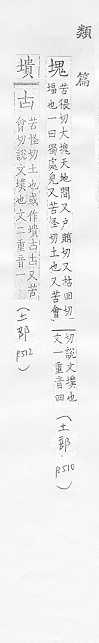 類 篇
塊 苦很切大塊天地間又戶賄切又枯回切
塲也一曰獨處皃又苦怪切土也又苦會
切說文墣也
文一重音四
(土部 P510)
墤 古 苦怪切土也或作墤古古又苦
會切說文墣也文二重音一
(土部 P512)